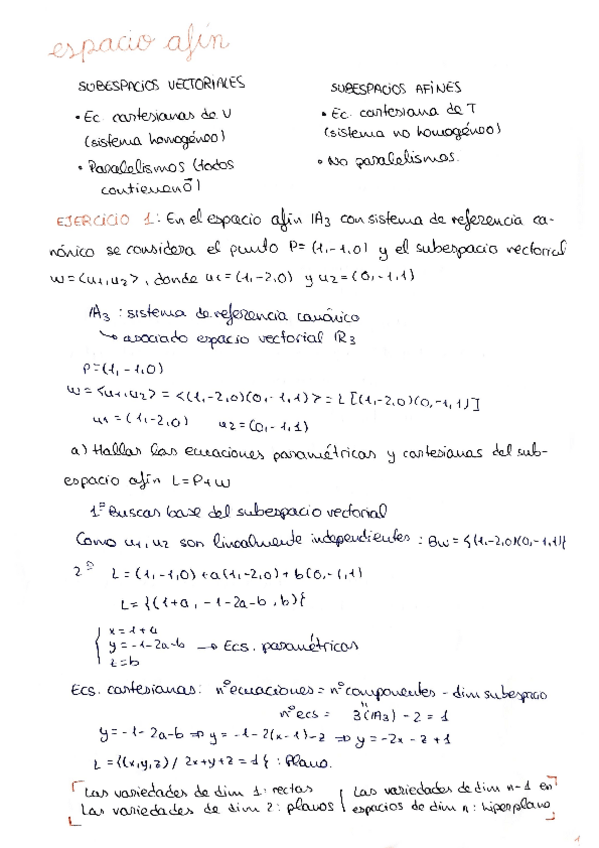 espacio afín
SUBESPACIOS VECTORIALES
• Ec. cartesianas de U
(sistema homogéneo)
• Paralelismos (todos
contienen 0⃗)
SUBESPACIOS AFINES
• Ec. cartesiana de T
(sistema no homogéneo)
• No paralelismos.
EJERCICIO 1: En el espacio afín IA3 con sistema de referencia ca-
nónico se considera el punto P= (1,-1,0) y el subespacio vectorial
W=<u1,u2>, donde u1=(1,-2,0) y u2=(0,-1,1)
IA3 : sistema de referencia canónico
↳ asociado espacio vectorial IR3
P=(1,-1,0)
W=<u1,u2> = <(1,-2,0)(0,-1,1)> = L[(1,-2,0)(0,-1,1)]
u1=(1,-2,0) u2=(0,-1,1)
a) Hallar las ecuaciones paramétricas y cartesianas del sub-
espacio afín L=P+W
1º Buscas base del subespacio vectorial
Como u1,u2 son linealmente independientes : Bw={(1,-2,0)(0,-1,1)}
2º L=(1,-1,0)+a(1,-2,0)+b(0,-1,1)
L={(1+a, -1-2a-b, b)}
x=1+a
y=-1-2a-b → Ecs. paramétricas
z=b
Ecs. cartesianas: nº ecuaciones = nº componentes - dim subespacio
nº ecs = 3(IA3) - 2 = 1
y=-1-2a-b ⇒ y=-1-2(x-1)-z ⇒ y=-2x-z+1
L={(x,y,z) / 2x+y+z=1} : Plano.
Las variedades de dim 1: rectas
Las variedades de dim 2: planos
Las variedades de dim n-1 en
espacios de dim n: hiperplano
1